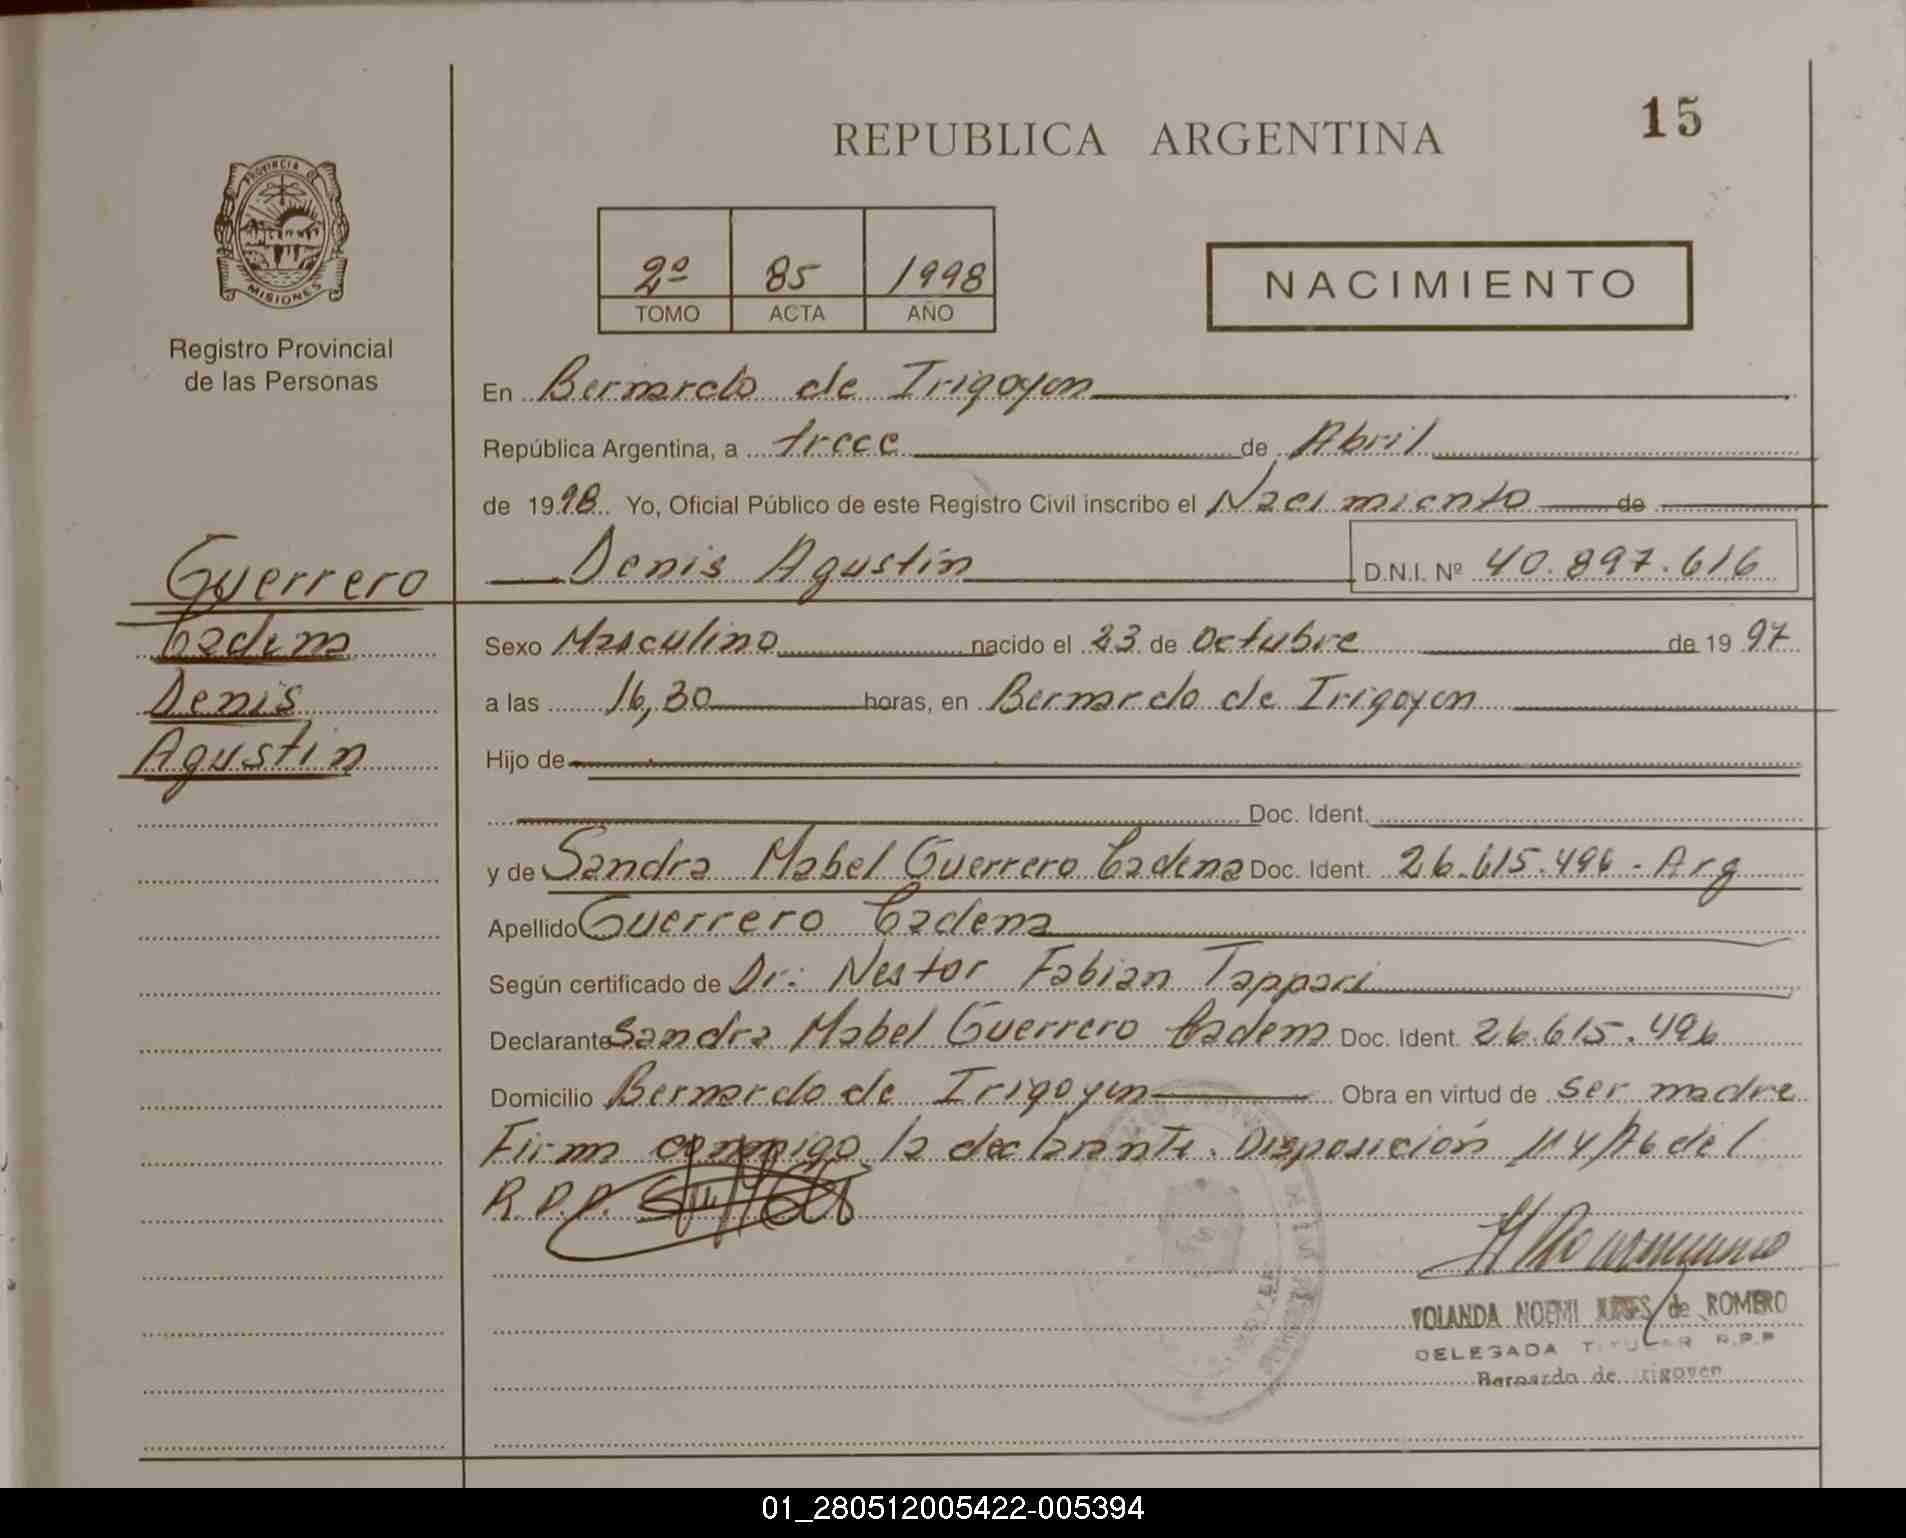 REPUBLICA ARGENTINA
15
PROVINCIA DE
MISIONES
Registro Provincial
de las Personas
2º 85 1998
TOMO ACTA AÑO
NACIMIENTO
En Bernardo de Irigoyen
República Argentina, a trece de Abril
de 1998 Yo, Oficial Público de este Registro Civil inscribo el Nacimiento de
Denis Agustín D.N.I. Nº 40.897.616
Guerrero
Cadena
Denis
Agustin
Sexo Masculino nacido el 23 de Octubre de 19 97
a las 16,30 horas, en Bernardo de Irigoyen
Hijo de
Doc. Ident.
y de Sandra Mabel Guerrero Cadena Doc. Ident. 26.615.496 - Arg
Apellido Guerrero Cadena
Según certificado de Dr: Nestor Fabian Tappari
Declarante Sandra Mabel Guerrero Cadena Doc. Ident. 26.615.496
Domicilio Bernardo de Irigoyen Obra en virtud de ser madre
Firma conmigo la declarante. Disposición 114/76 del
R.P.P.
YOLANDA NOEMI de ROMERO
DELEGADA TITULAR R.P.P
Bernardo de Irigoyen
01_280512005422-005394